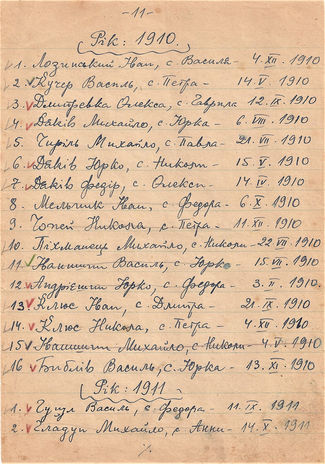 - 11 -
Рік: 1910
1. Лозинський Іван, с. Василя - 4. XII. 1910
2. Кучер Василь, с. Петра - 14. V. 1910
3. Дмитрєвка Олекса, с. Гаврила 12. IX. 1910
4. Дяків Михайло, с. Юрка - 6. VIII. 1910
5. Чиріль Михайло, с. Павла - 21. VII. 1910
6. Дяків Юрко, с. Николи - 15. V. 1910
7. Дяків Федір, с. Олекси - 14. IV. 1910
8. Мельник Іван, с. Федора - 6. X. 1910
9. Никола, с. Петра - 11. XII. 1910
10. Піхманець Михайло, с. Николи - 22. VII. 1910
11. Іванишин Василь, с. Юрка 15. VII. 1910
12. Андрієшин Юрко, с. Федора - 3. II. 1910
13. Клюс Іван, с. Дмитра - 21. IX. 1910
14. Клюс Никола, с. Петра - 4. XII. 1910
15. Іванишин Михайло, с. Николи - 4. V. 1910
16. Библів Василь, с. Юрка - 13. XI. 1910
Рік: 1911
1. Василь, с. Федора - 11. IX. 1911
2. Гладун Михайло, с. Анни - 14. X. 1911
./.